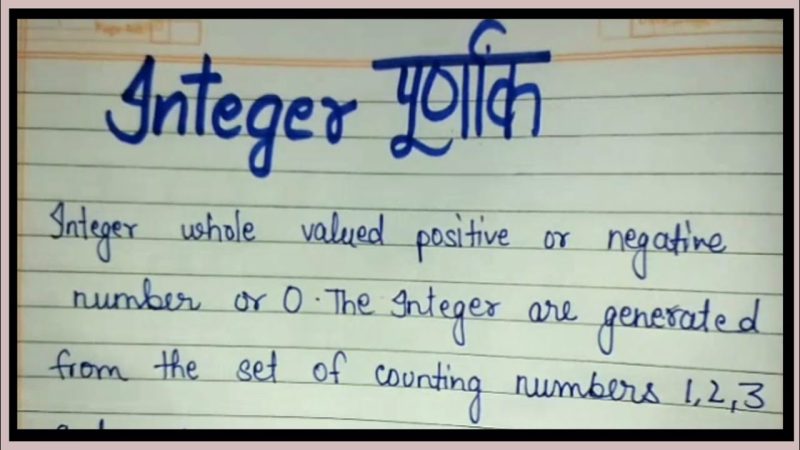 Integer पूर्णांक
Integer whole valued positive or negative
number or 0. The Integer are generated
from the set of counting numbers 1,2,3